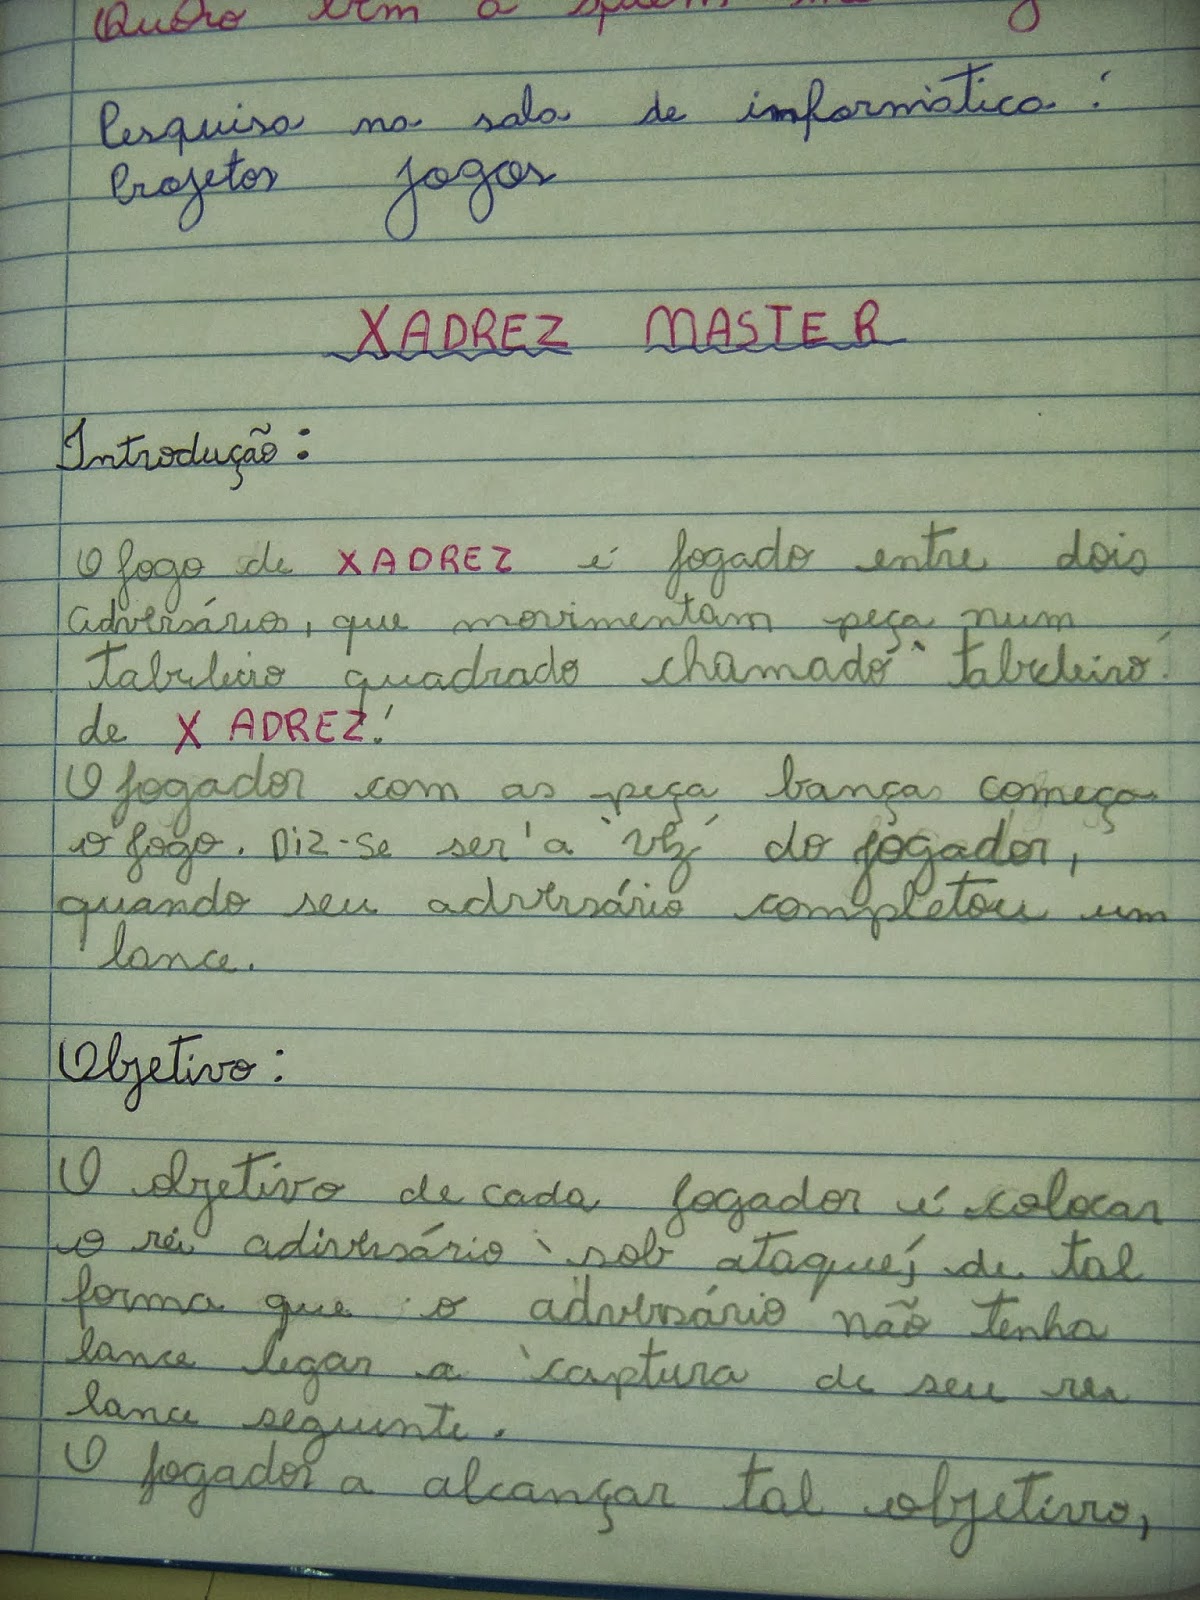 Pesquisa na sala de informática:
Projetos jogos
XADREZ MASTER
Introdução:
O jogo de XADREZ é jogado entre dois
adversário, que movimentam peça num
tabuleiro quadrado chamado "tabuleiro
de XADREZ!
O jogador com as peça bança começa
o jogo. Diz-se ser 'a 'vez' do jogador,
quando seu adversário completou um
lance.
Objetivo:
O objetivo de cada jogador é colocar
o rei adiversário 'sob ataque', de tal
forma que o adversário não tenha
lance legar a 'captura de seu rei
lance seguinte.
O jogador a alcançar tal objetivo,